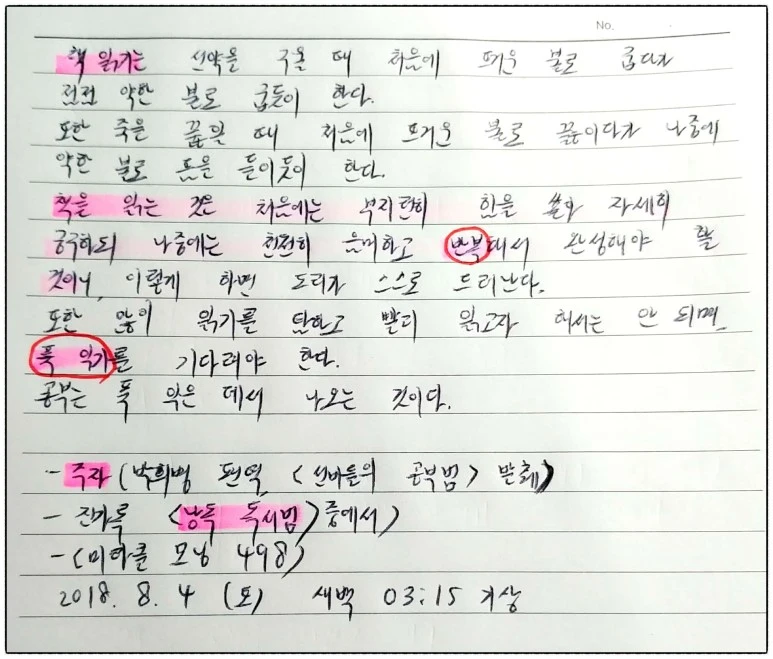 No.
책 읽기는 선약을 구울 때 처음에 뜨거운 불로 굽다가
점점 약한 불로 굽듯이 한다.
또한 죽을 끓일 때 처음에 뜨거운 불로 끓이다가 나중에
약한 불로 뜸을 들이듯이 한다.
책을 읽는 것은 처음에는 부지런히 힘을 쏟아 자세히
궁구하되 나중에는 천천히 음미하고 반복해서 완성해야 할
것이니, 이렇게 하면 도리가 스스로 드러난다.
또한 많이 읽기를 탐하고 빨리 읽고자 해서는 안 되며,
푹 익기를 기다려야 한다.
공부는 푹 익은 데서 나오는 것이다.
- 주자 (박희병 편역 <선비들의 공부법> 발췌)
- 진가록 <낭독 독서법> 중에서)
- (미라클 모닝 498)
2018. 8. 4 (토) 새벽 03:15 기상